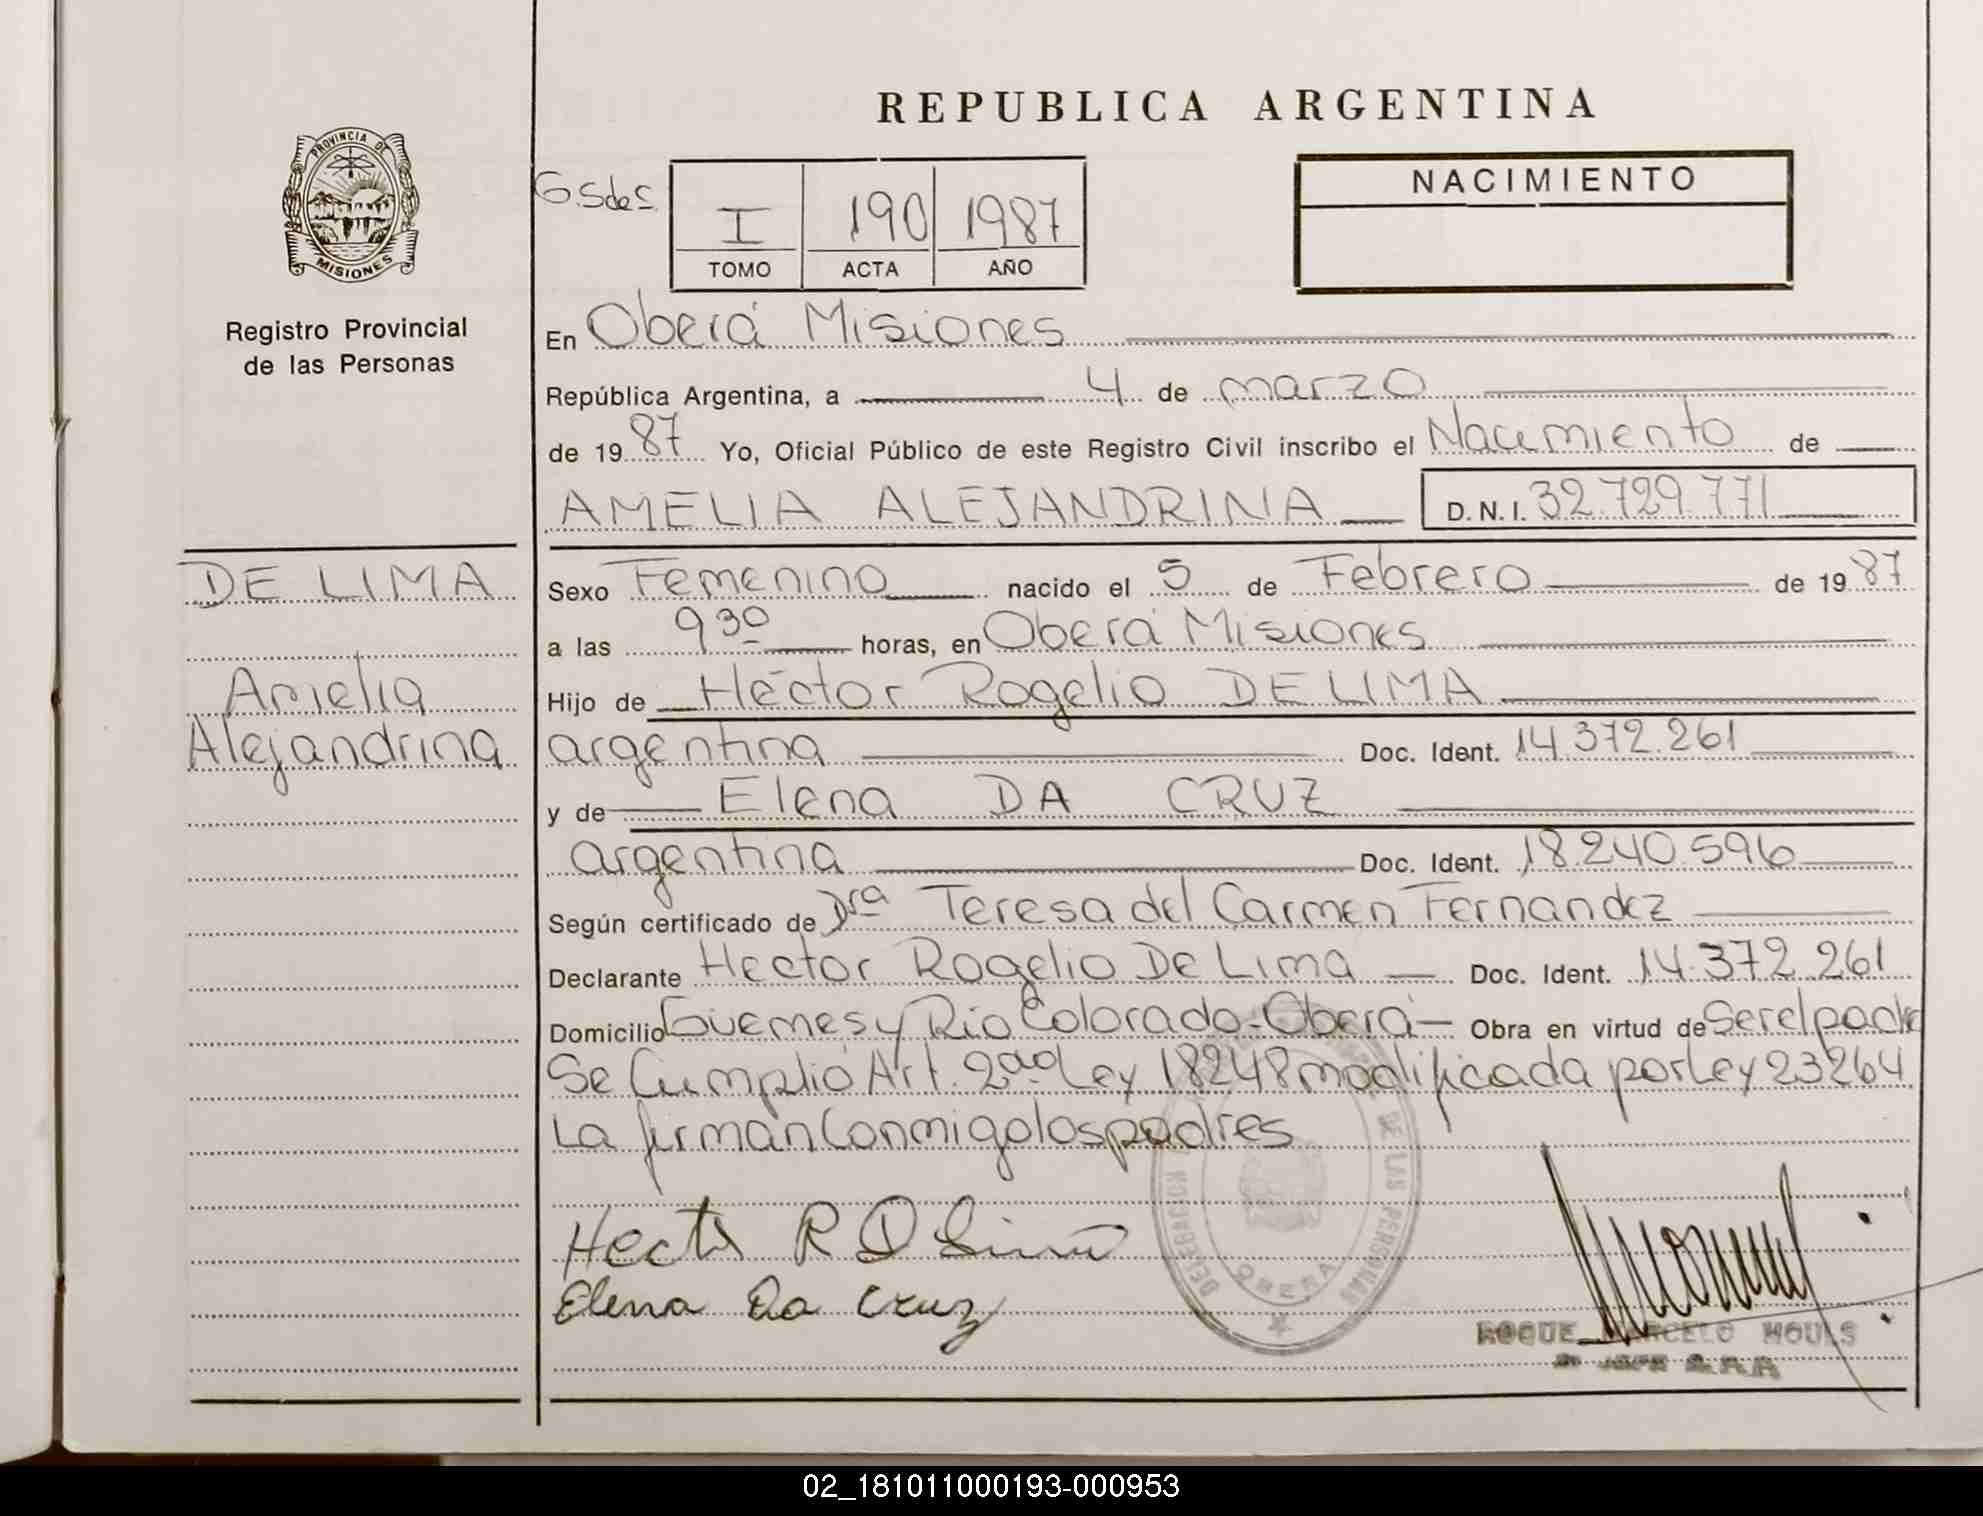 REPUBLICA ARGENTINA
PROVINCIA DE
MISIONES
Registro Provincial
de las Personas
G.SdeS.
I 190 1987
TOMO ACTA AÑO
NACIMIENTO
En Oberá Misiones
República Argentina, a 4 de marzo
de 1987 Yo, Oficial Público de este Registro Civil inscribo el Nacimiento de
AMELIA ALEJANDRINA D.N.I. 32.729.771
DE LIMA
Amelia
Alejandrina
Sexo Femenino nacido el 5 de Febrero de 1987
a las 9 30 horas, en Oberá Misiones
Hijo de Héctor Rogelio DE LIMA
argentina Doc. Ident. 14.372.261
y de Elena DA CRUZ
argentina Doc. Ident. 18.240.596
Según certificado de Dra Teresa del Carmen Fernandez
Declarante Hector Rogelio De Lima Doc. Ident. 14.372.261
Domicilio Guemes y Rio Colorado - Oberá - Obra en virtud de Ser el padre
Se Cumplió Art. 2do Ley 18248 modificada por Ley 23264
La firman Conmigo los padres
Hector R D Lima
Elena Da Cruz
DELEGACION DE LAS PERSONAS
OBERA
ROQUE MARCELO MOULS
02_181011000193-000953